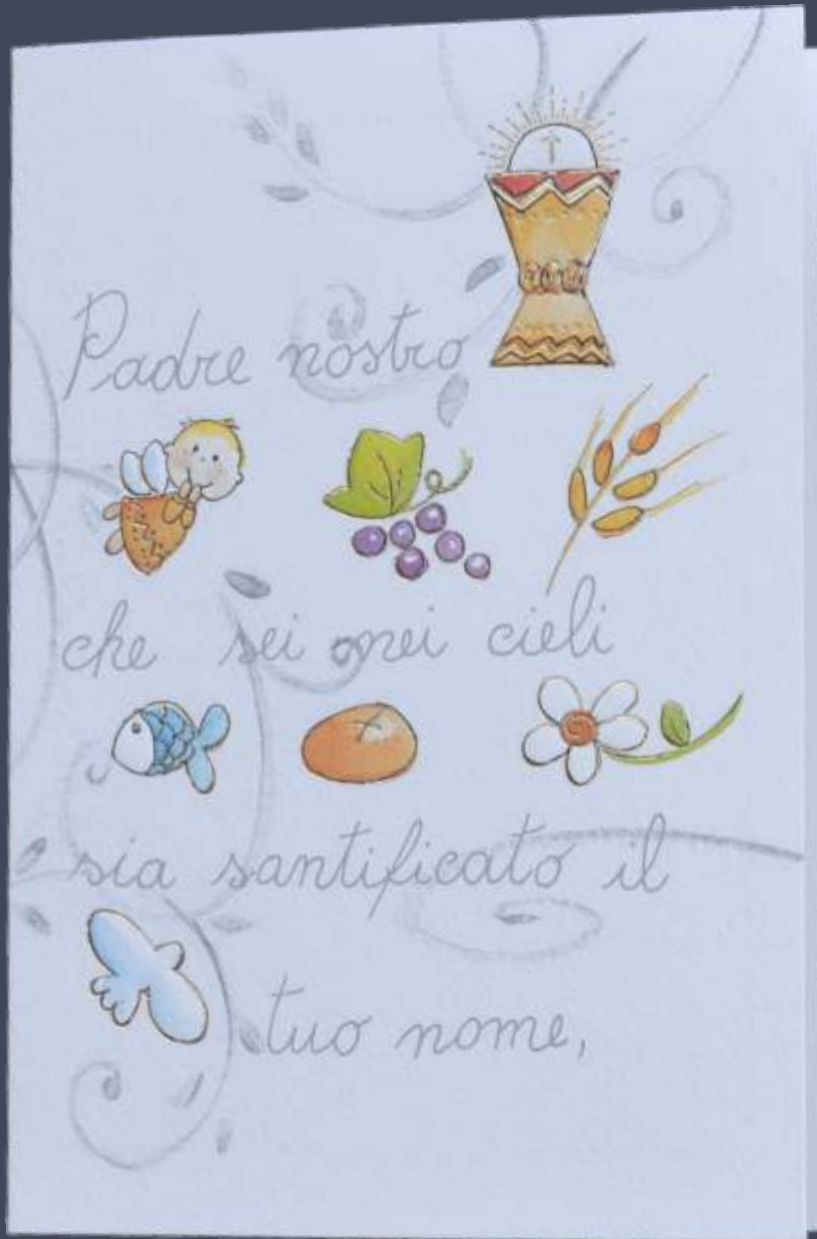 Padre nostro
che sei nei cieli
sia santificato il
tuo nome,